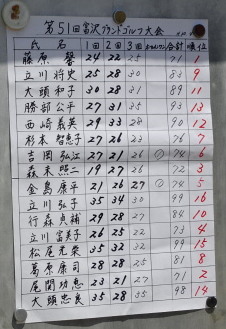 第51回富沢グランドゴルフ大会
氏名 1回 2回 3回 ホールインワン 合計 順位
藤原馨 24 22 25 71 1
立川将史 25 28 30 83 9
大頭和子 30 28 31 89 11
勝部公平 27 31 35 93 13
西崎義英 29 33 28 90 12
杉本智恵子 27 26 23 76 7
吉岡弘江 27 21 26 74 6
森末照二 19 27 26 72 3
金島康平 21 26 27 74 5
立川弘子 35 34 30 99 16
行森貞補 29 28 27 84 10
立川富美子 26 25 22 73 4
松尾光栄 35 32 32 99 15
葛原康司 28 28 25 81 8
尾関功恵 23 21 27 71 2
大頭忠良 35 28 35 98 14